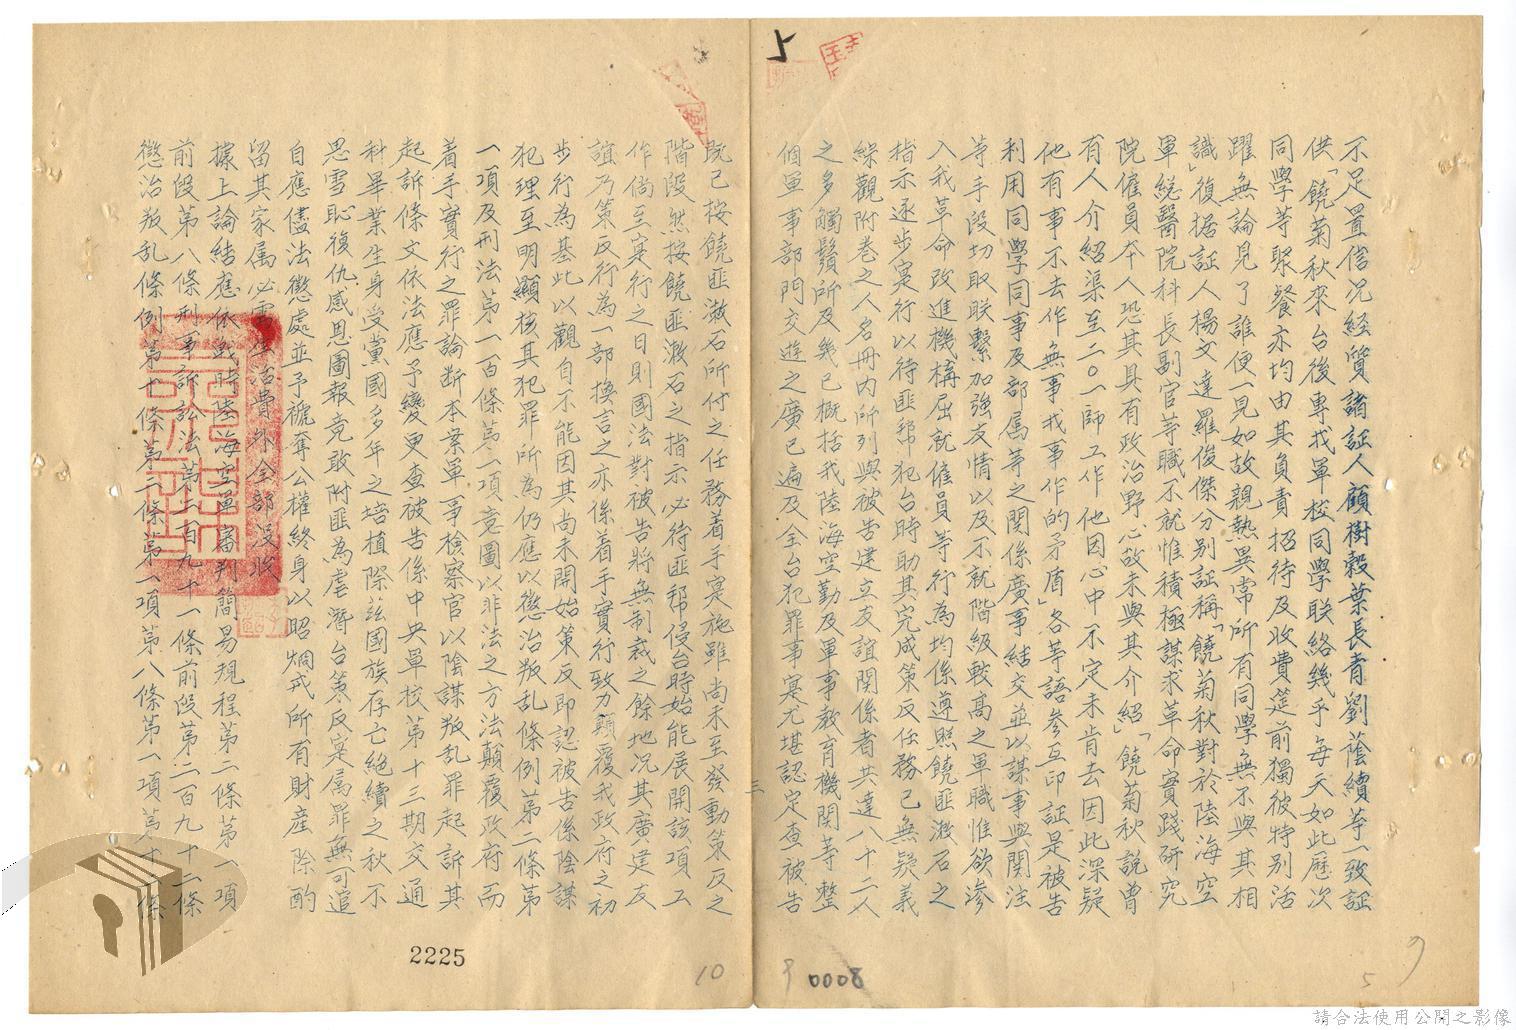 不足置信況經質諸証人顧樹榖葉長青劉蔭續等一致証
供「饒菊秋來台後專找軍校同學联絡幾乎每天如此歷次
同學等聚餐亦均由其負責招待及收費筵前獨彼特別活
躍無論見了誰便一見如故親熱異常所有同學無不與其相
識」復据証人楊文達羅俊傑分別証稱「饒菊秋對於陸海空
軍総醫院科長副官等職不就惟積極謀求革命實踐研究
院僱員本人恐其具有政治野心故未與其介紹」「饒菊秋說曾
有人介紹渠至二〇一師工作他因心中不定未肯去因此深疑
他有事不去作無事找事作的矛盾」各等語參互印証是被告
利用同學同事及部屬等之関係廣事結交並以謀事與関注
等手段切取联繫加強友情以及不就階級較高之軍職惟欲滲
入我革命改進機構屈就僱員等行為均係遵照饒匪漱石之
指示逐步寔行以待匪帮犯台時助其完成策反任務已無疑義
綜觀附卷之人名冊内所列與被告建立友誼関係者共達八十二人
之多觸鬚所及幾已概括我陸海空勤及軍事教育機関等整
個軍事部門交遊之廣已遍及全台犯罪事寔尤堪認定查被告
三
既已按饒匪漱石所付之任務着手寔施雖尚未至發動策反之
階段然按饒匪漱石之指示必待匪帮侵台時始能展開該項工
作倘至寔行之日則國法對被告將無制裁之餘地況其廣建友
誼乃策反行為一部換言之亦係着手實行致力顛覆我政府之初
步行為基此以觀自不能因其尚未開始策反即認被告係陰謀
犯理至明顯核其犯罪所為仍應以懲治叛乱條例第二條第
一項及刑法第一百條第一項意圖以非法之方法顛覆政府而
着手實行之罪論断本案軍事檢察官以陰謀叛乱罪起訴其
起訴條文依法應予變更查被告係中央軍校第十三期交通
科畢業生身受黨國多年之培植際兹國族存亡絕續之秋不
思雪恥復仇感恩圖報竟敢附匪為虐潛台策反寔属罪無可逭
自應儘法懲處並予褫奪公權終身以昭烱戒所有財産除酌
留其家属必需生活費外全部沒收
據上論結應依战時陸海空軍審判簡易規程第二條第一項
前段第八條刑事訴訟法第二百九十一條前段第二百九十二條
懲治叛乱條例第十條第二條第一項第八條第一項第十二條
5
2225
10
0008
5
9
請合法使用公開之影像